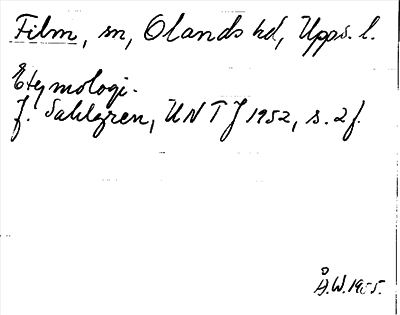 Film, sn, Olands hd, Upps. l.
Etymologi.
J. Sahlgren, UNT J 1952, s. 2f.
Å.W. 1955.